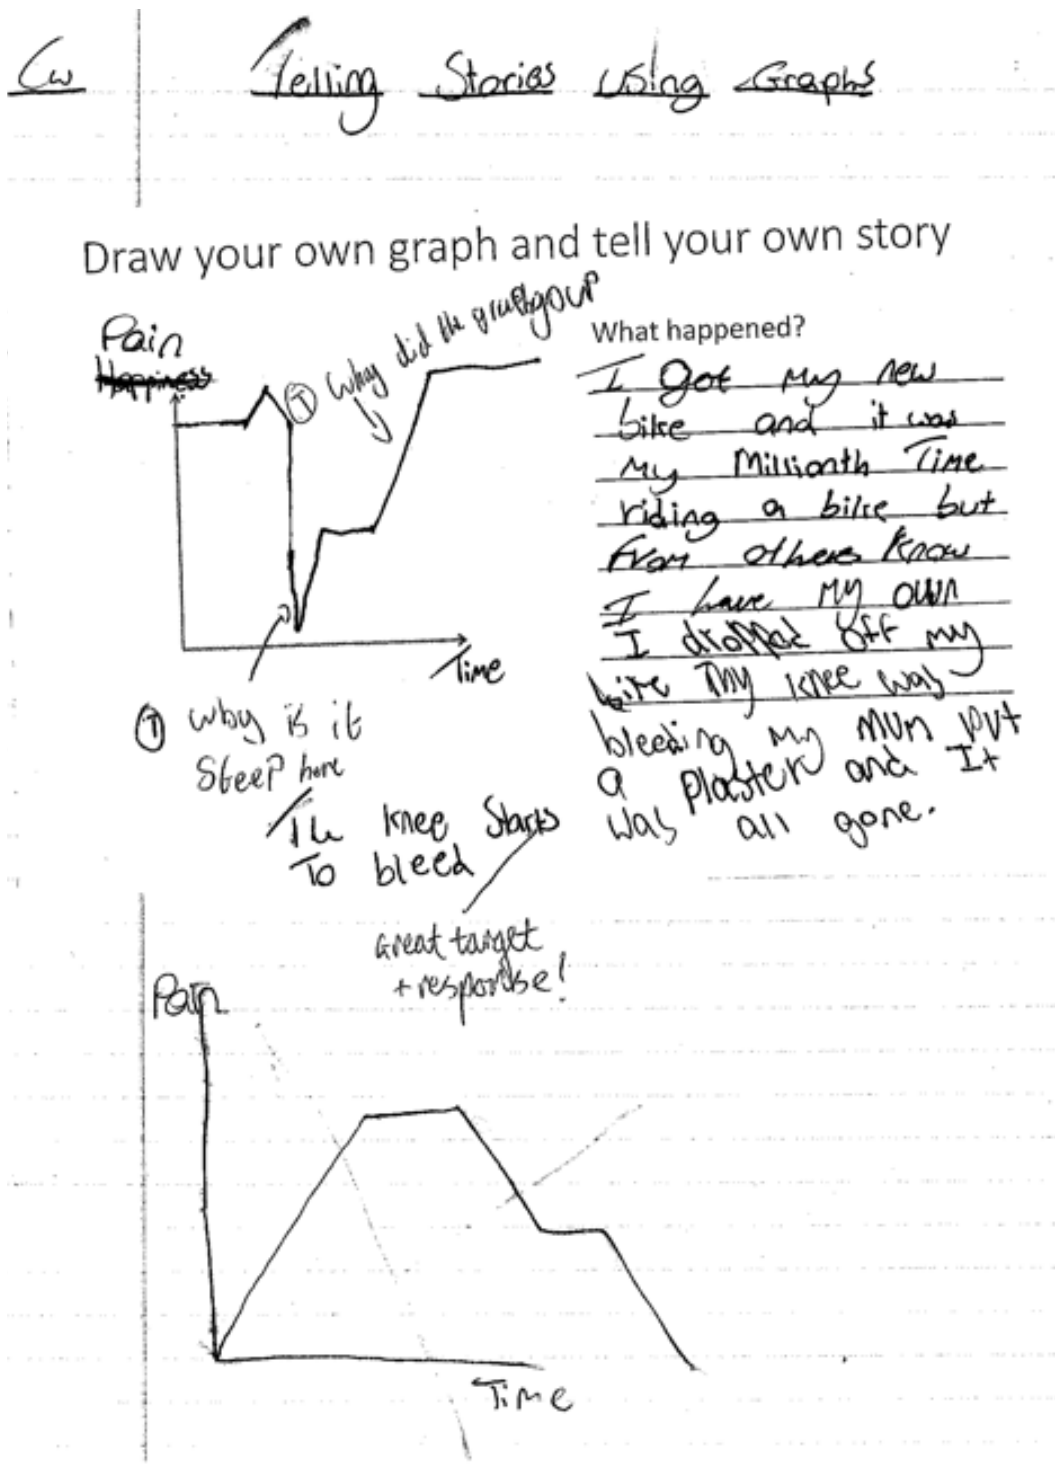 Cw Telling Stories using Graphs
Draw your own graph and tell your own story
Pain
Happiness
T why did the graph go up
Time
T why is it
steep here
The knee starts
To bleed
Great target
+ response!
What happened?
I got my new
bike and it was
my Millionth Time
riding a bike but
from others know
I have my own
I dropped off my
bike my knee was
bleeding my mum put
a plaster and It
was all gone.
Pain
Time